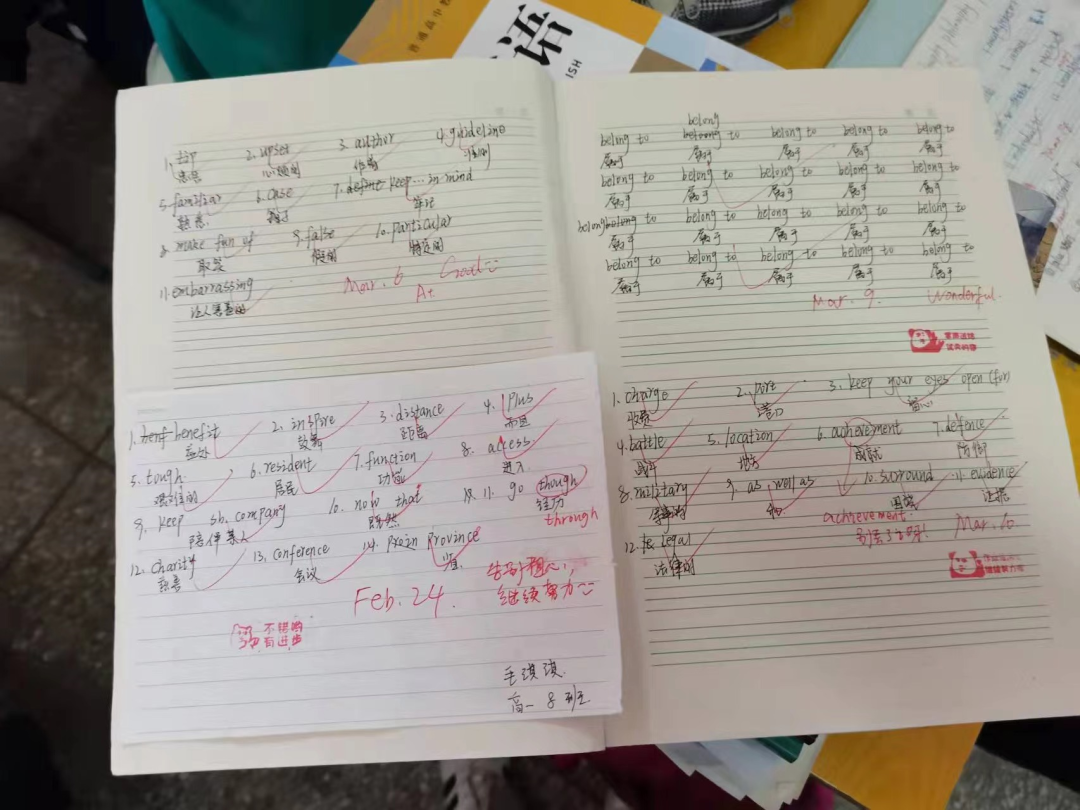 普通高中教
语
1. tip 2. upset 3. author 4. guideline
作者
5. familiar 6. case 7. keep... in mind
熟悉 牢记
8. make fun of 9. false 10. particular
取笑 假的 特定的
11. embarrassing
Mar. 6 Good
A+
1. benefit 2. inspire 3. distance 4. plus
益处 鼓舞 距离 而且
5. tough 6. resident 7. function 8. access
困难的 居民 功能 进入
9. keep sb. company 10. now that 11. go though
陪伴某人 既然 经历
through
12. charity 13. conference 14. province
慈善 会议 省
Feb. 24.
继续努力
不错哟
有进步
毛琪琪
高一 8班
belong
belong to belong to belong to belong to
属于 属于 属于 属于 属于
belong to belong to belong to belong to belong to
属于 属于 属于 属于 属于
belong to belong to belong to belong to
属于 属于 属于 属于 属于
belong to belong to belong to belong to belong to
属于 属于 属于 属于 属于
Mar. 9. Wonderful.
1. charge 2. pore 3. keep your eyes open (for)
收费 留心
4. battle 5. location 6. achevement 7. defence
战斗 地方 成就 防御
8. military 9. as well as 10. surround 11. evidence
军事的 和 围绕 证据
achievement
别丢了i呀! Mar. 10
12. legal
法律的